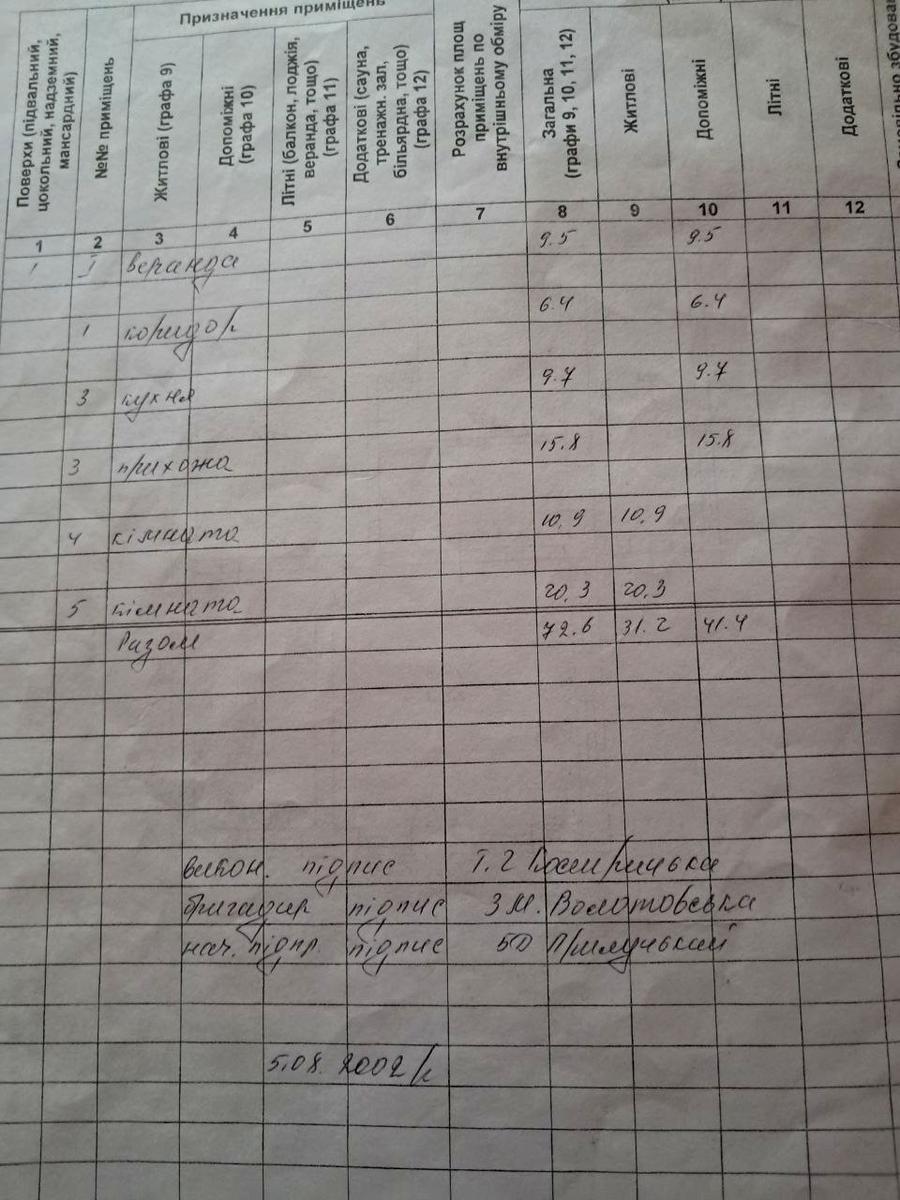 Призначення приміщень
Поверхи (підвальний, цокольний, надземний, мансардний)
№№ приміщень
Житлові (графа 9)
Допоміжні (графа 10)
Літні (балкон, лоджія, веранда, тощо) (графа 11)
Додаткові (сауна, тренажн. зал, більярдна, тощо) (графа 12)
Розрахунок площ приміщень по внутрішньому обміру
Загальна (графи 9, 10, 11, 12)
Житлові
Допоміжні
Літні
Додаткові
1 2 3 4 5 6 7 8 9 10 11 12
1 1 веранда 9.5 9.5
1 коридор 6.4 6.4
3 кухня 9.7 9.7
3 прихожа 15.8 15.8
4 кімната 10.9 10.9
5 кімната 20.3 20.3
Разом 72.6 31.2 41.4
викон. підпис Т.Г
бригадир підпис З М. Волотовська
нач. підпр. підпис Прилуцький
5.08. 2002 р